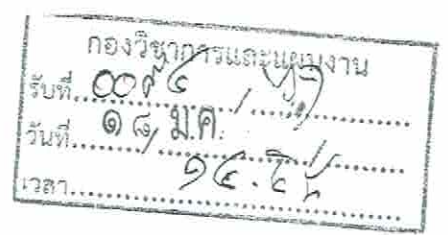 กองวิชาการและแผนงาน
รับที่ ๐๐๙๔ /
วันที่ ๑๘ ม.ค.
เวลา ๑๔.